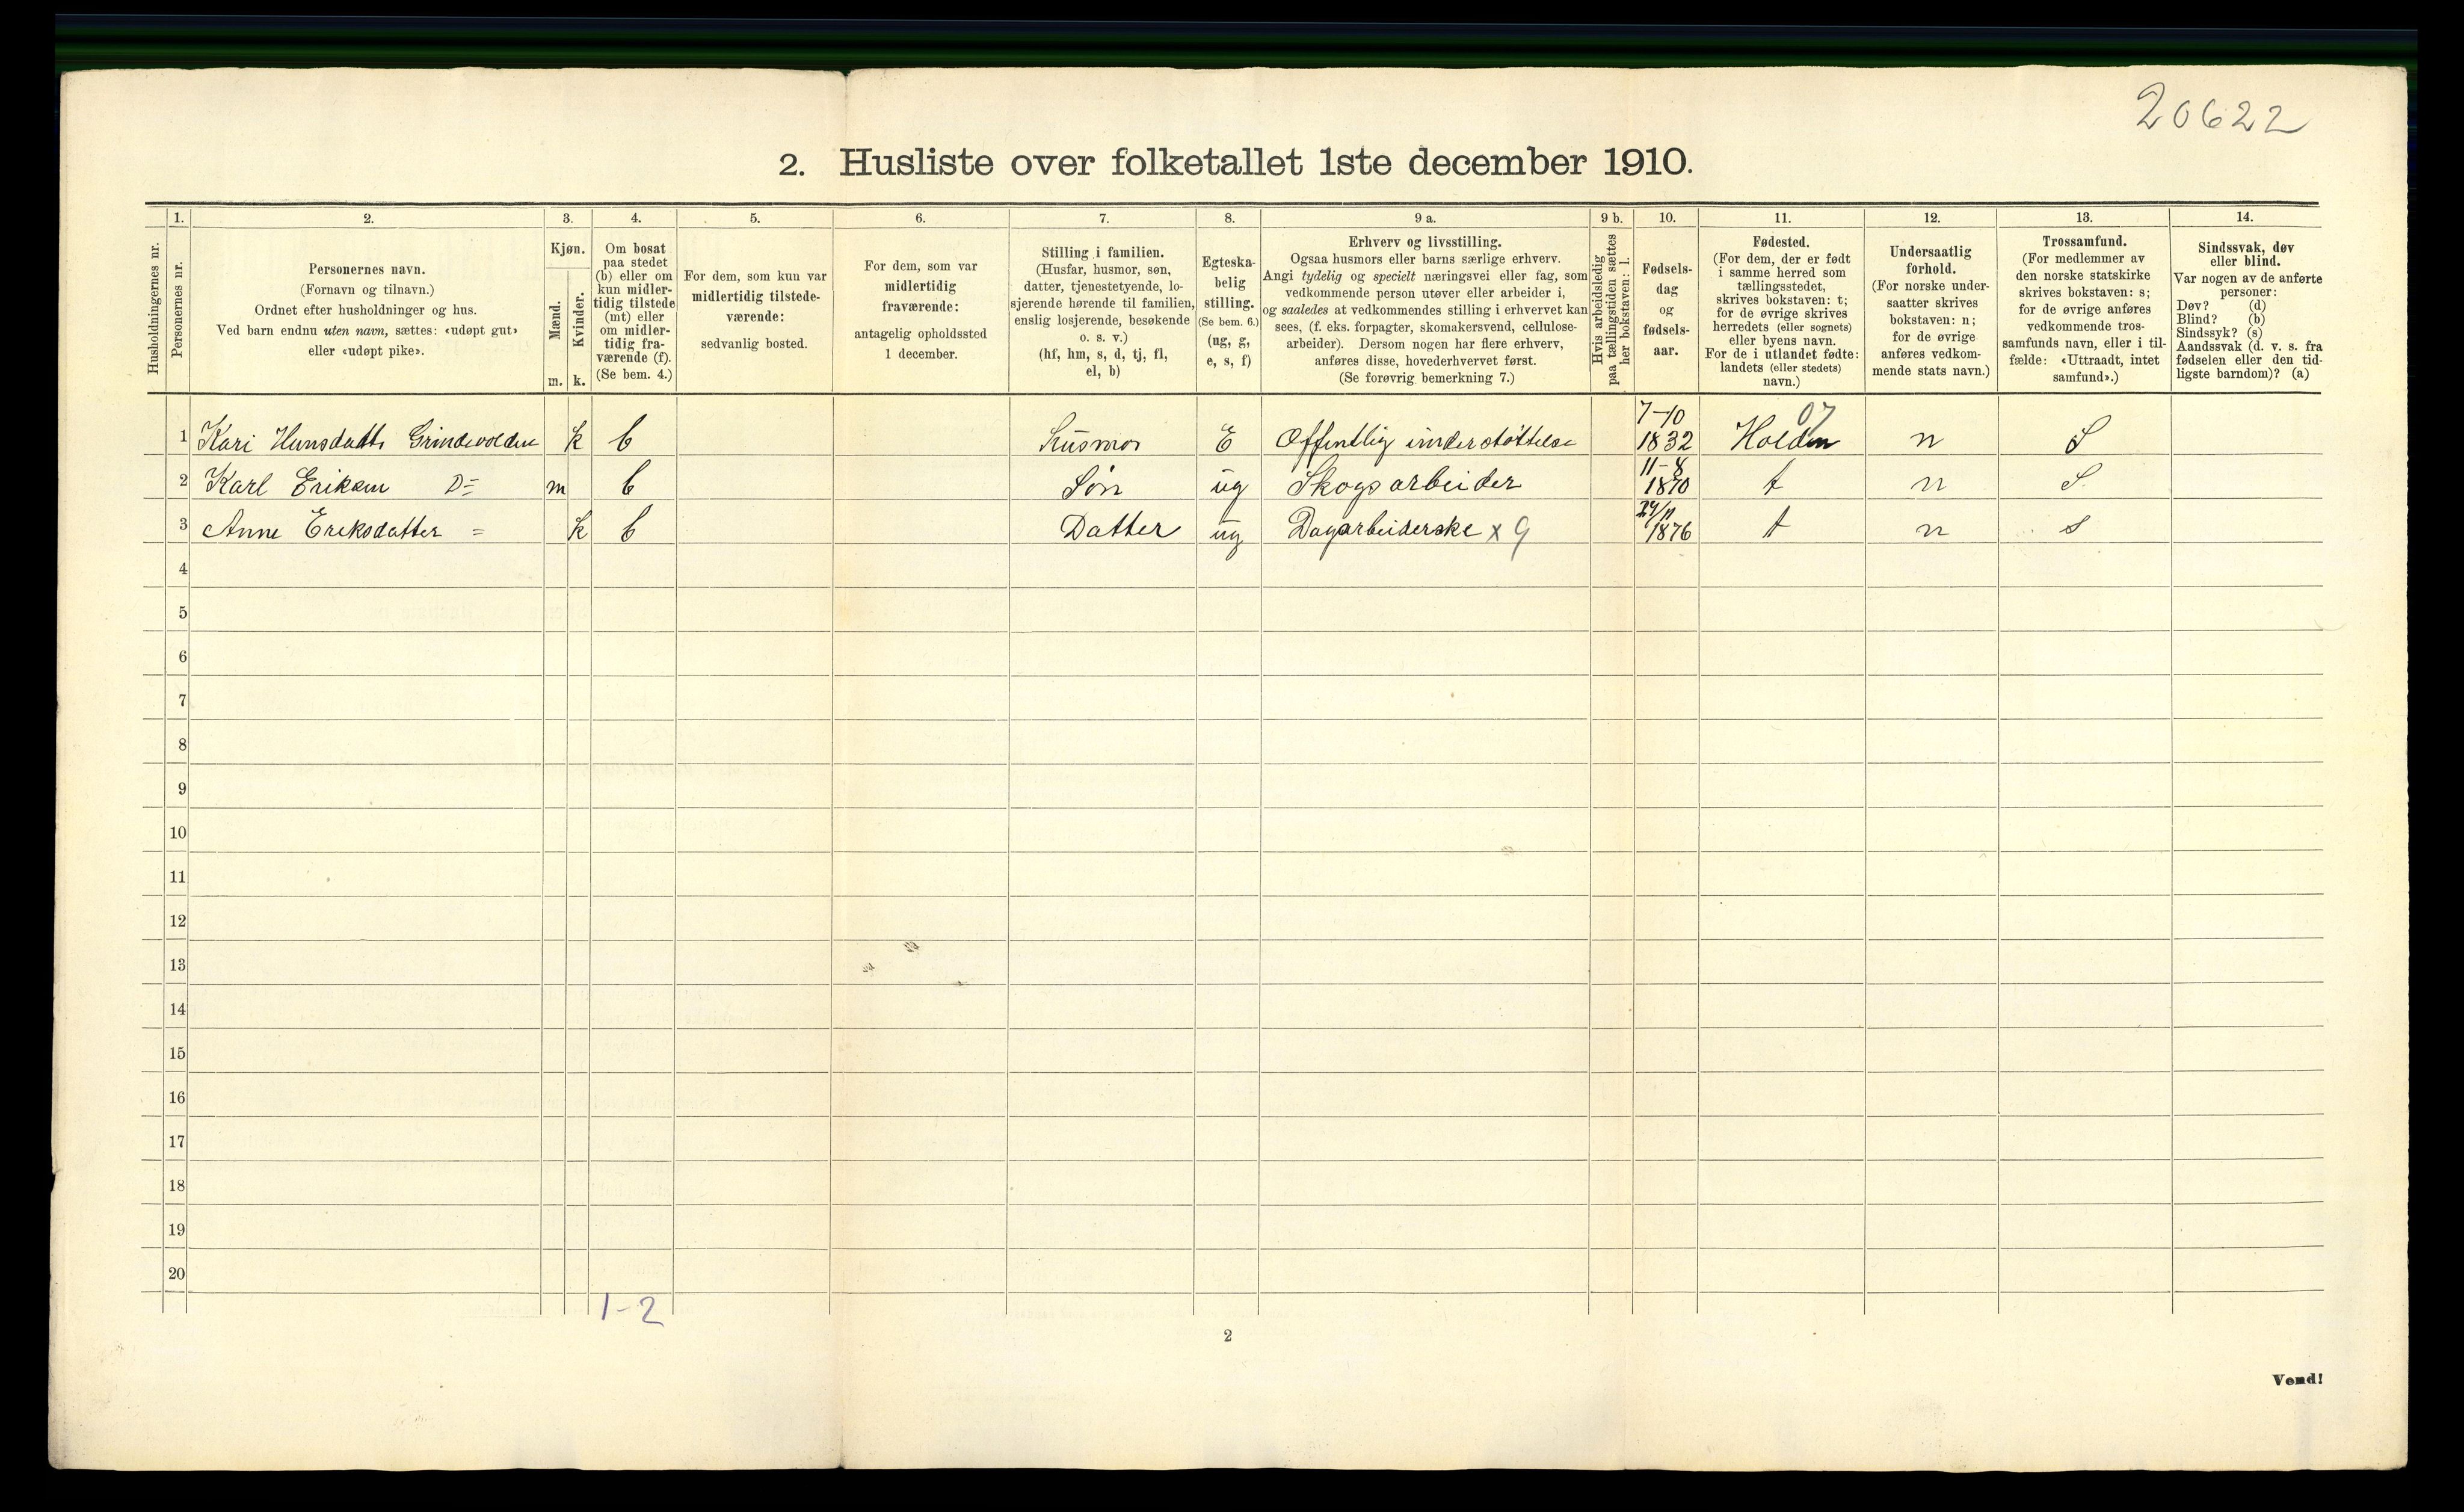 20622
2. Husliste over folketallet 1ste december 1910.
Husholdningernes nr.
1.
Personernes nr.
2.
Personernes navn.
(Fornavn og tilnavn.)
Ordnet efter husholdninger og hus.
Ved barn endnu uten navn, sættes: «udøpt gut»
eller «udøpt pike».
3.
Kjøn.
Mænd.
m.
Kvinder.
k.
4.
Om bosat
paa stedet
(b) eller om
kun midler-
tidig tilstede
(mt) eller
om midler-
tidig fra-
værende (f).
(Se bem. 4.)
5.
For dem, som kun var
midlertidig tilstede-
værende:
sedvanlig bosted.
6.
For dem, som var
midlertidig
fraværende:
antagelig opholdssted
1 december.
7.
Stilling i familien.
(Husfar, husmor, søn,
datter, tjenestetyende, lo-
sjerende hørende til familien,
enslig losjerende, besøkende
o. s. v.)
(hf, hm, s, d, tj, fl,
el, b)
8.
Egteska-
belig
stilling.
(Se bem. 6.)
(ug, g,
e, s, f)
9 a.
Erhverv og livsstilling.
Ogsaa husmors eller barns særlige erhverv.
Angi tydelig og specielt næringsvei eller fag, som
vedkommende person utøver eller arbeider i,
og saaledes at vedkommendes stilling i erhvervet kan
sees, (f. eks. forpagter, skomakersvend, cellulose-
arbeider). Dersom nogen har flere erhverv,
anføres disse, hovederhvervet først.
(Se forøvrig bemerkning 7.)
9 b.
Hvis arbeidsledig
paa tællingstiden sættes
her bokstaven: l.
10.
Fødsels-
dag
og
fødsels-
aar.
11.
Fødested.
(For dem, der er født
i samme herred som
tællingsstedet,
skrives bokstaven: t;
for de øvrige skrives
herredets (eller sognets)
eller byens navn.
For de i utlandet fødte:
landets (eller stedets)
navn.)
12.
Undersaatlig
forhold.
(For norske under-
saatter skrives
bokstaven: n;
for de øvrige
anføres vedkom-
mende stats navn.)
13.
Trossamfund.
(For medlemmer av
den norske statskirke
skrives bokstaven: s;
for de øvrige anføres
vedkommende tros-
samfunds navn, eller i til-
fælde: «Uttraadt, intet
samfund».)
14.
Sindssvak, døv
eller blind.
Var nogen av de anførte
personer:
Døv? (d)
Blind? (b)
Sindssyk? (s)
Aandssvak (d. v. s. fra
fødselen eller den tid-
ligste barndom)? (a)
1 Kari Hansdatts Grindevolden k b Husmor E Offentlig understøttelse 7-10 1832 Holden 07 n S
2 Karl Eriksen D= m b Søn ug Skogsarbeider 11-8 1870 t n S.
3 Anne Eriksdatter = k b Datter ug Dagarbeiderske x 9 24/11 1876 t n s
4
5
6
7
8
9
10
11
12
13
14
15
16
17
18
19
20
1-2
2
Vend!